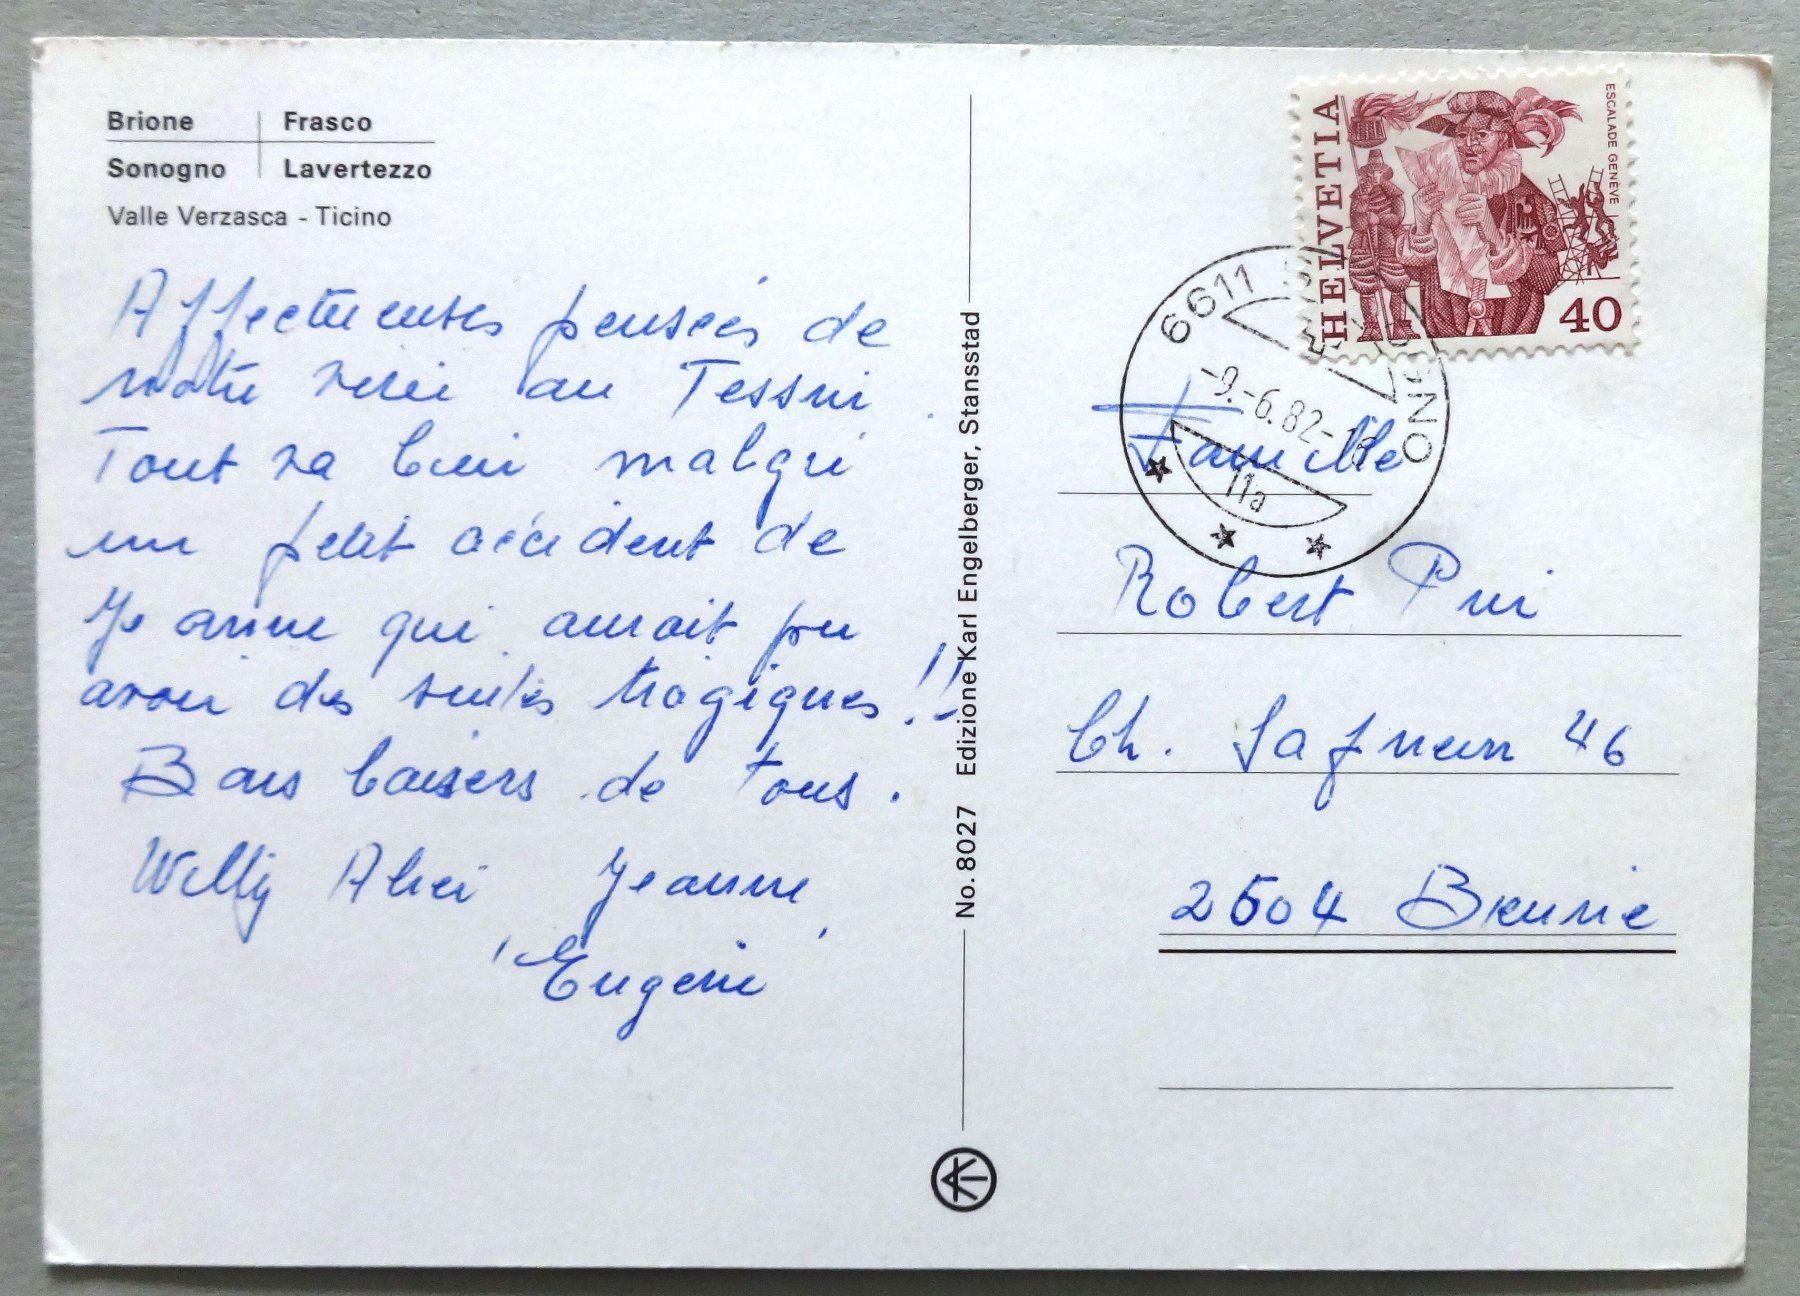 Brione Frasco
Sonogno Lavertezzo
Valle Verzasca - Ticino
Affectueuses pensées de
notre virée au Tessin.
Tout va bien malgré
un petit accident de
Jeanne qui aurait pu
avoir des suites tragiques!!
Bons baisers de tous.
Willy Alice Jeanne
Eugénie
No. 8027 Edizione Karl Engelberger, Stansstad
HELVETIA
ESCALADE GENÈVE
40
6611
-9.-6.82-
11a
Famille
Robert
Ch. Safnern 46
2504 Bienne